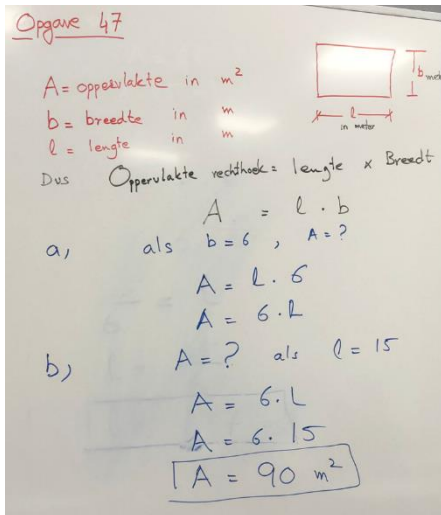 Opgave 47
A = oppervlakte in m²
b = breedte in m
l = lengte in m
b
l
in meter
Dus Oppervlakte rechthoek = lengte x Breedt
A = l . b
a, als b = 6 , A = ?
A = l . 6
A = 6 . L
b) A = ? als l = 15
A = 6 . L
A = 6 . 15
A = 90 m²